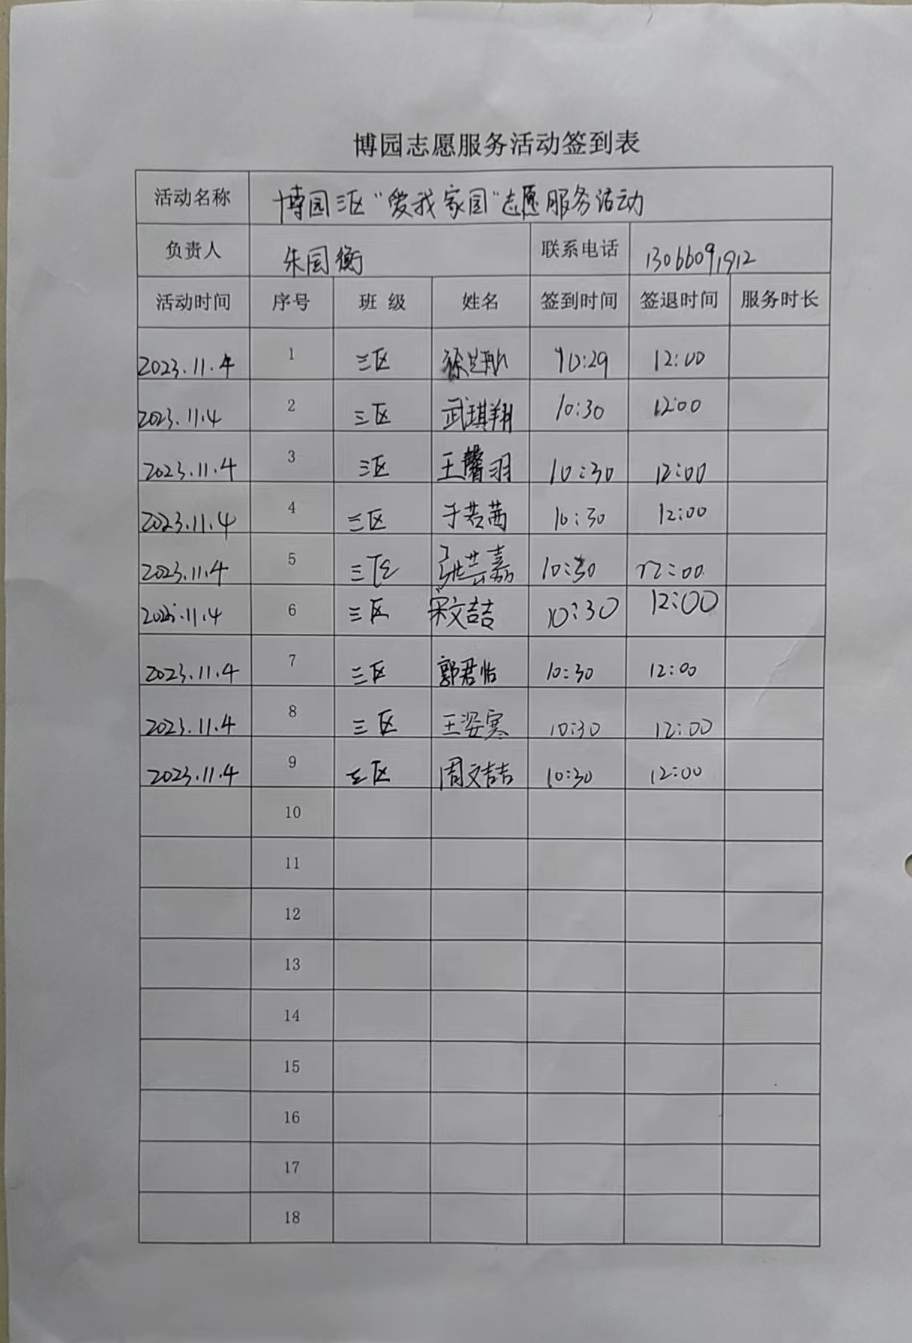 博园志愿服务活动签到表
活动名称 博园三区“爱我家园”志愿服务活动
负责人 朱国衡 联系电话 13066091912
活动时间 序号 班 级 姓名 签到时间 签退时间 服务时长
2023.11.4 1 三区 徐 10:29 12:00
2023.11.4 2 三区 武琪翔 10:30 12:00
2023.11.4 3 三区 王馨羽 10:30 12:00
2023.11.4 4 三区 于若茜 10:30 12:00
2023.11.4 5 三区 张芸嘉 10:30 12:00
2023.11.4 6 三区 宋文喆 10:30 12:00
2023.11.4 7 三区 郭君怡 10:30 12:00
2023.11.4 8 三区 王姿寒 10:30 12:00
2023.11.4 9 三区 周文喆 10:30 12:00
10
11
12
13
14
15
16
17
18